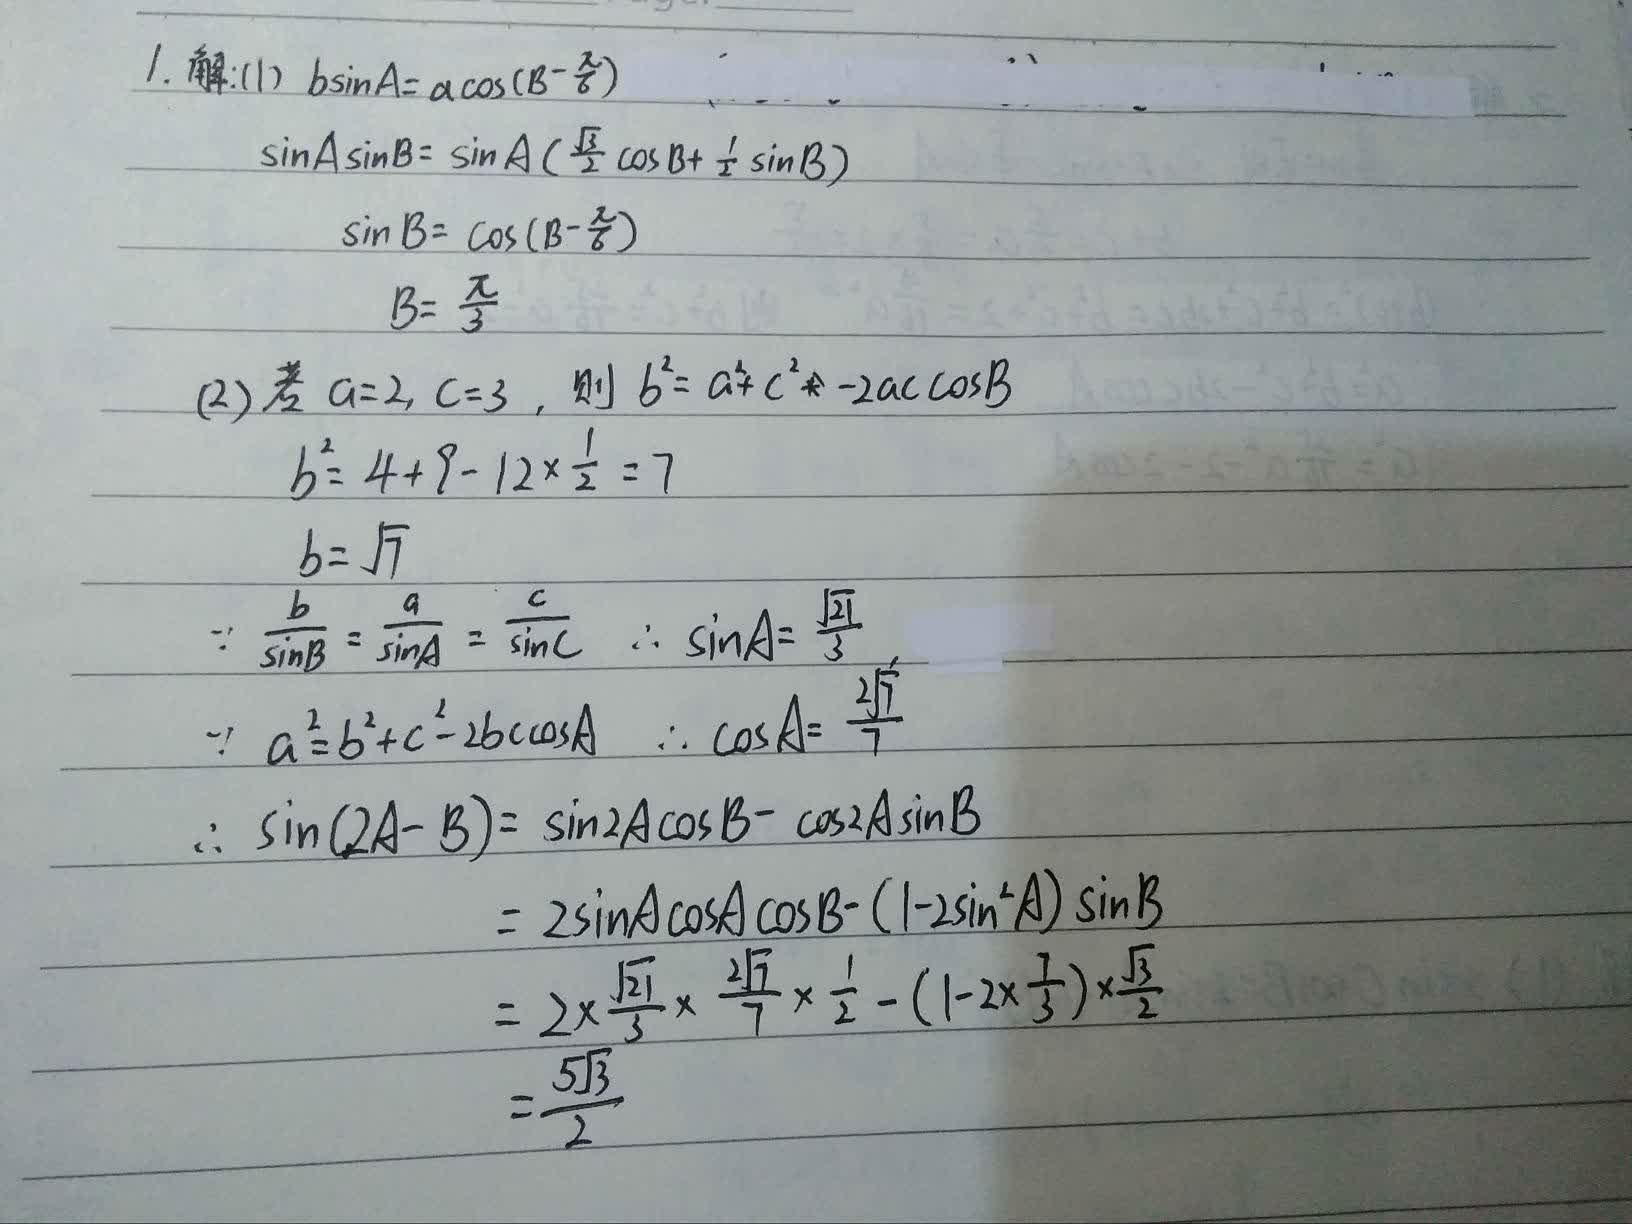 1. 解:(1) bsinA=acos(B-π/6)
sinAsinB=sinA(√3/2 cosB+1/2 sinB)
sinB=cos(B-π/6)
B=π/3
(2) 若 a=2, c=3, 则 b²=a²+c²-2accosB
b²=4+9-12×1/2=7
b=√7
∵ b/sinB=a/sinA=c/sinC ∴ sinA=√21/3
∵ a²=b²+c²-2bccosA ∴ cosA=2√7/7
∴ sin(2A-B)=sin2AcosB-cos2AsinB
=2sinAcosAcosB-(1-2sin²A)sinB
=2×√21/3×2√7/7×1/2-(1-2×7/3)×√3/2
=5√3/2